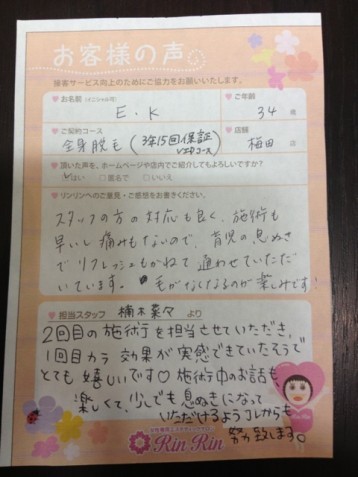 お客様の声
接客サービス向上のためにご協力をお願いいたします。
お名前(イニシャル可)
ご年齢
E.K
34 歳
ご契約コース
店舗
全身脱毛(3年15回保証
VIPコース)
梅田 店
頂いた声を、ホームページや店内でご紹介してもよろしいですか?
はい □匿名で □いいえ
リンリンへのご意見・ご感想をお書きください。
スタッフの方の対応も良く、施術も
早いし痛みもないので、育児の息ぬき
でリフレッシュもかねて通わせていただ
いています。毛がなくなるのが楽しみです!
担当スタッフ 楠木菜々 より
2回目の施術を担当させていただき、
1回目カラ効果が実感できていたそうで
とても嬉しいです♡施術中のお話も、
楽しくて、少しでも息ぬきになって
いただけるようこれからも
努力致します。
Rin Rin
RinRin